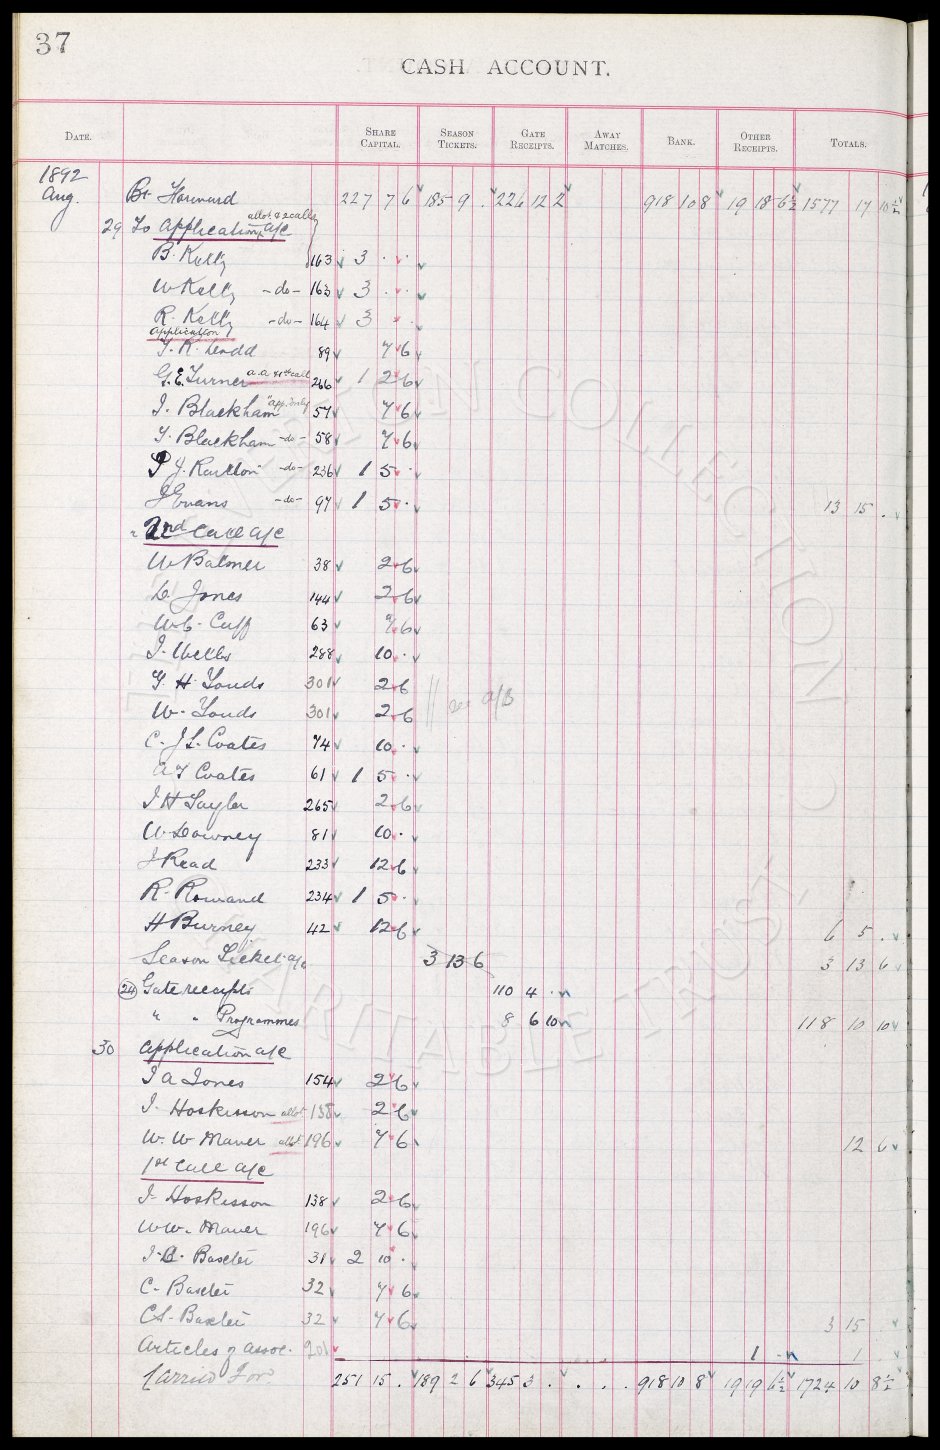 37
CASH ACCOUNT.
DATE. SHARE CAPITAL. SEASON TICKETS. GATE RECEIPTS. AWAY MATCHES. BANK. OTHER RECEIPTS. TOTALS.
1892
Aug. Bt. Forward 227 7 6 185 9 . 226 12 2 918 10 8 19 18 6½ 1577 17 10½
allot. & 2 calls
29 To Application a/c
B. Kelly 163 3 . .
W Kelly -do- 163 3 . .
R. Kelly -do- 164 3 . .
application
T. R. Dodd 89 7 6
G. E. Turner a.a & 1st call 266 1 2 6
I. Blackham app. only 57 7 6
T. Blackham -do- 58 7 6
J. -do- 236 1 5 .
J Evans -do- 97 1 5 . 13 15 .
" 2nd Call a/c
W Balmer 38 2 6
D. Jones 144 2 6
W. C. Cuff 63 7 6
I. Wells 288 10 .
T. H. Youds 301 2 6
see a/B
W. Youds 301 2 6
C. J L. Coates 74 10 .
A T Coates 61 1 5 .
J H Taylor 265 2 6
W Downey 81 10 .
J Read 233 12 6
R. Rowand 234 1 5 .
H Burney 42 12 6 6 5 .
Season Ticket a/c 3 13 6 3 13 6
24 Gate receipts 110 4 .
" " Programmes 8 6 10 118 10 10
30 Application a/c
I A Jones 154 2 6
I. Hoskisson allot 138 2 6
W. W Maver allot 196 7 6 12 6
1st Call a/c
I. Hoskisson 138 2 6
W W. Maver 196 7 6
J. C. Baxter 31 2 10 .
C. Baxter 32 7 6
C S. Baxter 32 7 6 3 15
Articles of assoc. 201 1 - 1
Carried For. 251 15 . 189 2 6 345 3 . . . . 918 10 8 19 19 6½ 1724 10 8½
EVERTON COLLECTION CHARITABLE TRUST